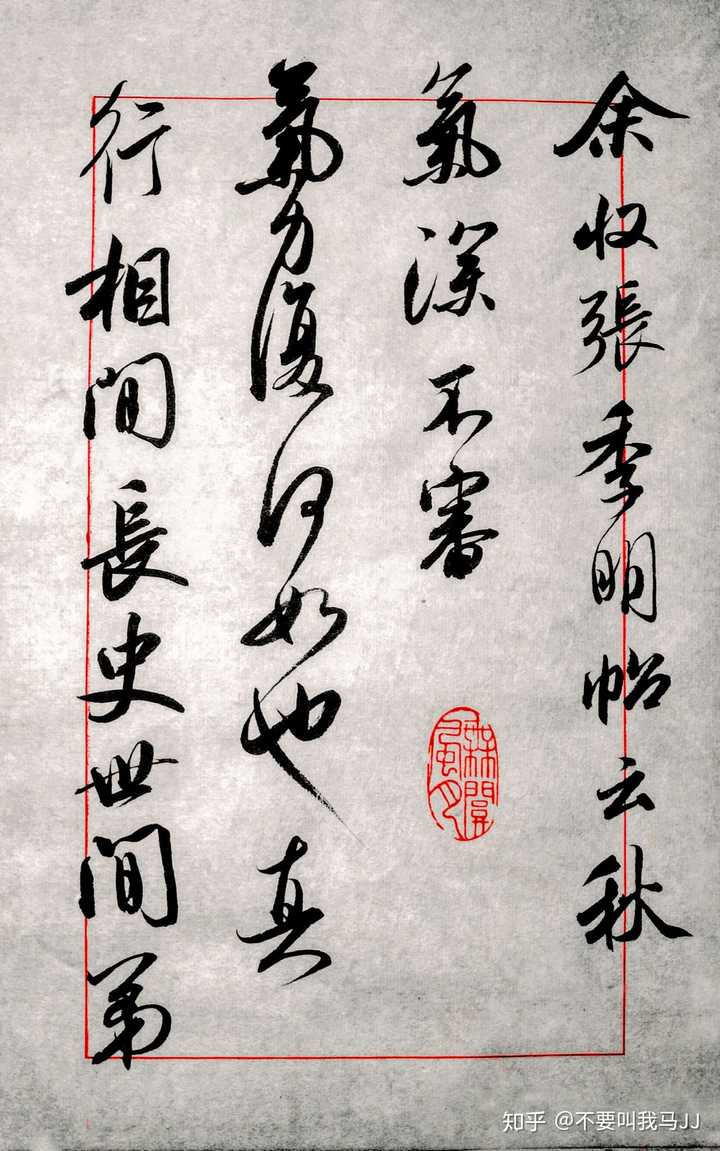 余収張季明帖云秋
氣深不審
氣力復何如也真
行相間長史世間第
知乎 @不要叫我马JJ